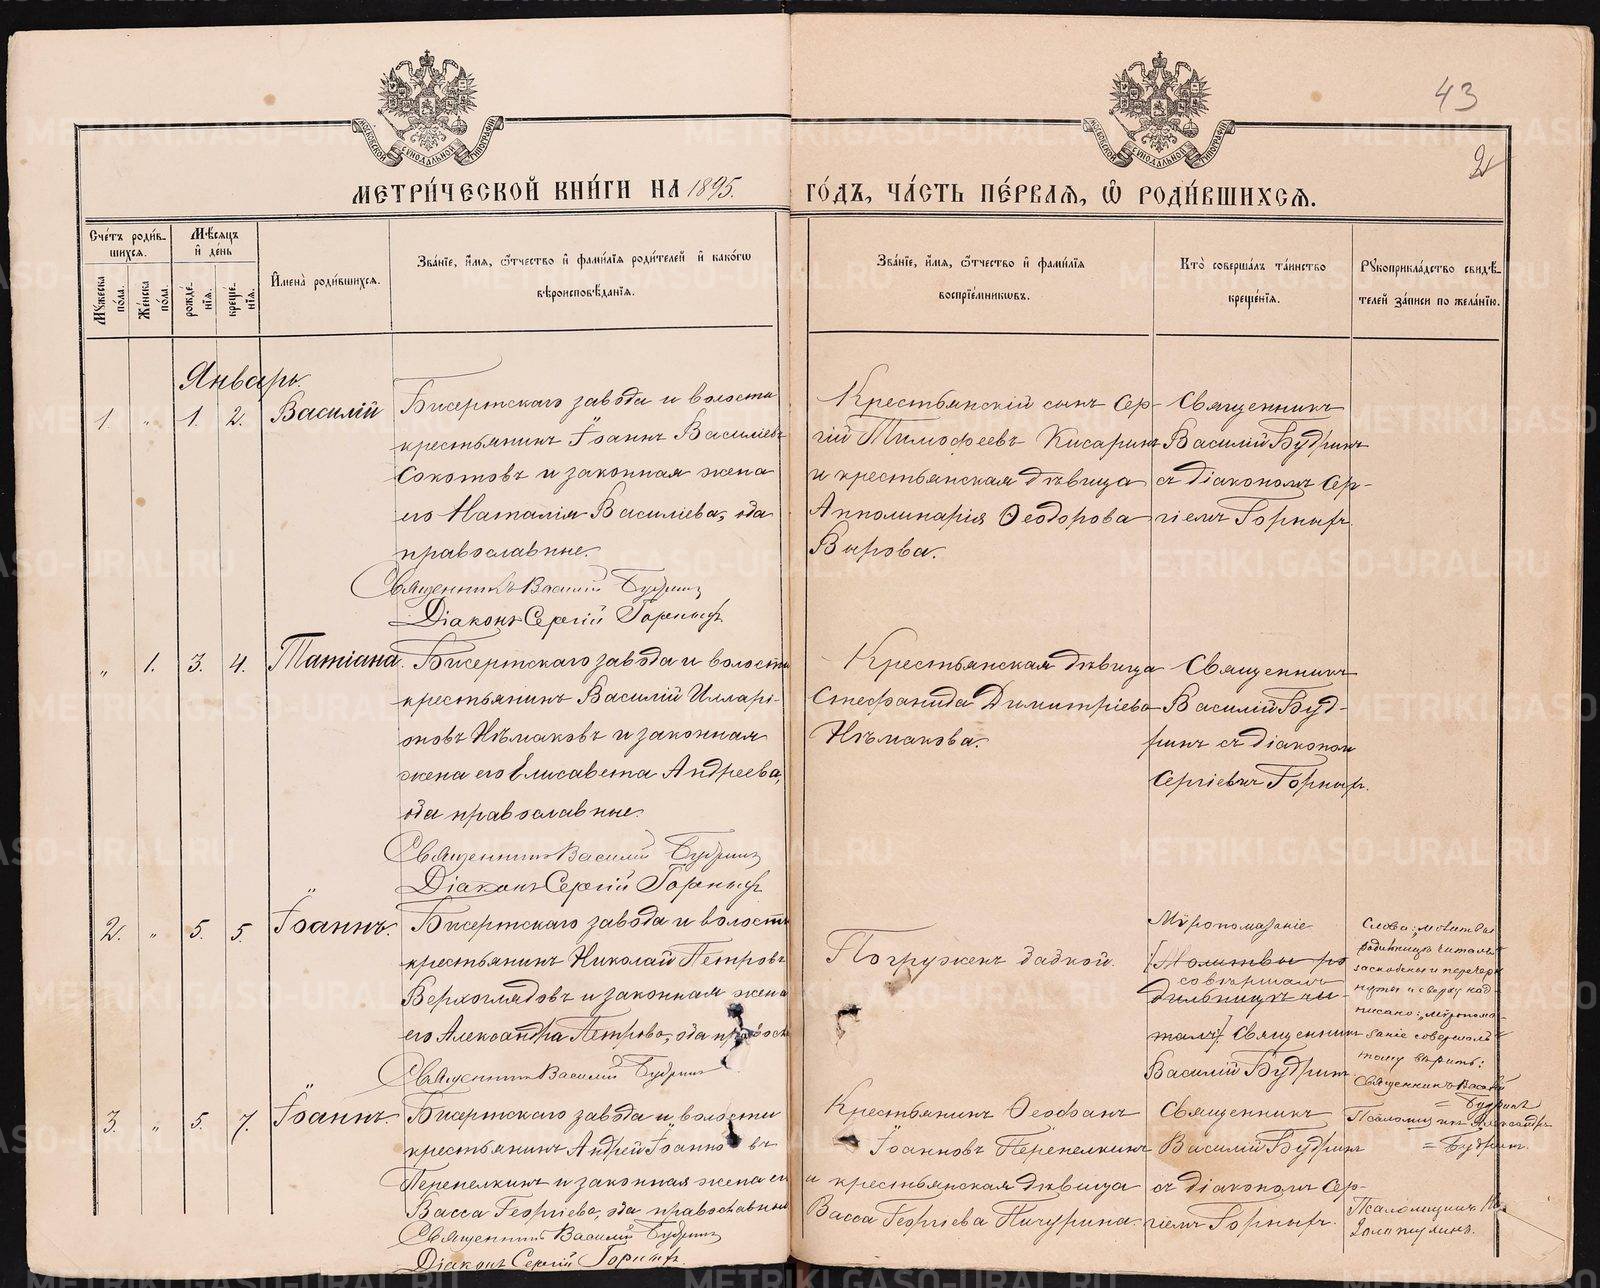 43
2
МОСКОВСКОЙ СѴНОДАЛЬНОЙ ТИПОГРАФІИ
МОСКОВСКОЙ СѴНОДАЛЬНОЙ ТИПОГРАФІИ
МЕТРИ́ЧЕСКОЙ КНИ́ГИ НА 1895. ГО́ДЪ, ЧА́СТЬ ПЕ́РВАЯ, Ѡ РОДИ́ВШИХСЯ.
Сче́тъ роди́в-
шихся.
Му́жеска по́ла.
Же́нска по́ла.
Мѣ́сяцъ
и де́нь
рожде́-
нія.
креще́-
нія.
Имена̀ роди́вшихся.
Зва́ніе, и́мя, ѻ҆́тчество и фами́лія роди́телей и како́гѡ
вѣроисповѣ́данія.
Зва́ніе, и́мя, ѻ҆́тчество и фами́лія
воспріе́мниковъ.
Кто̀ соверша́лъ та́инство
креще́нія.
Рꙋкоприкла́дство свидѣ́-
телей за́писи по жела́нію.
Январь.
1. „ 1. 2. Василій
Бисертскаго завода и волости
крестьянинъ Іоаннъ Василіевъ
Сокотовъ и законная жена
его Наталія Василіева, оба
православные.
Священникъ Василій Будринъ
Діаконъ Сергій Горныхъ
Крестьянскій сынъ Сер-
гій Тимофеевъ Кисаринъ
и крестьянская дѣвица
Апполинарія Ѳеодорова
Вырова.
Священникъ
Василій Будринъ
съ діакономъ Сер-
гіемъ Горныхъ.
„ 1. 3. 4. Татіана.
Бисертскаго завода и волости
крестьянинъ Василій Илларі-
оновъ Нѣмаковъ и законная
жена его Елисавета Андреева,
оба православные.
Священникъ Василій Будринъ
Діаконъ Сергій Горныхъ
Крестьянская дѣвица
Стефанида Димитріева
Нѣмакова.
Священникъ
Василій Буд-
ринъ съ діакономъ
Сергіемъ Горныхъ.
2. „ 5. 5. Іоаннъ.
Бисертскаго завода и волости
крестьянинъ Николай Петровъ
Верхоглядовъ и законная жена
его Александра Петрова, оба
Священникъ Василій Будринъ
Погруженъ бабкой.
Мѵропомазаніе
[Молитвы ро
совершалъ
дильницѣ чи-
талъ] Священникъ
Василій Будринъ
Слова: „молитвы
родильницѣ читалъ“
заскоблены и перечерк
нуты и сверху над-
писано: „мѵропома-
заніе совершалъ“
тому вѣрить:
Священникъ Василій
= Будринъ
Псаломщикъ Александръ
= Будринъ.
3. „ 5. 7. Іоаннъ.
Бисертскаго завода и волости
крестьянинъ Андрей Іоанновъ
Перепелкинъ и законная жена его
Васса Георгіева, оба православные
Священникъ Василій Будринъ
Діаконъ Сергій Горныхъ.
Крестьянинъ Ѳеофанъ
Іоанновъ Перепелкинъ
и крестьянская дѣвица
Васса Георгіева Пичурина.
Священникъ
Василій Будринъ
съ діакономъ Сер-
гіемъ Горныхъ.
Псаломщикъ
METRIKI.GASO-URAL.RU